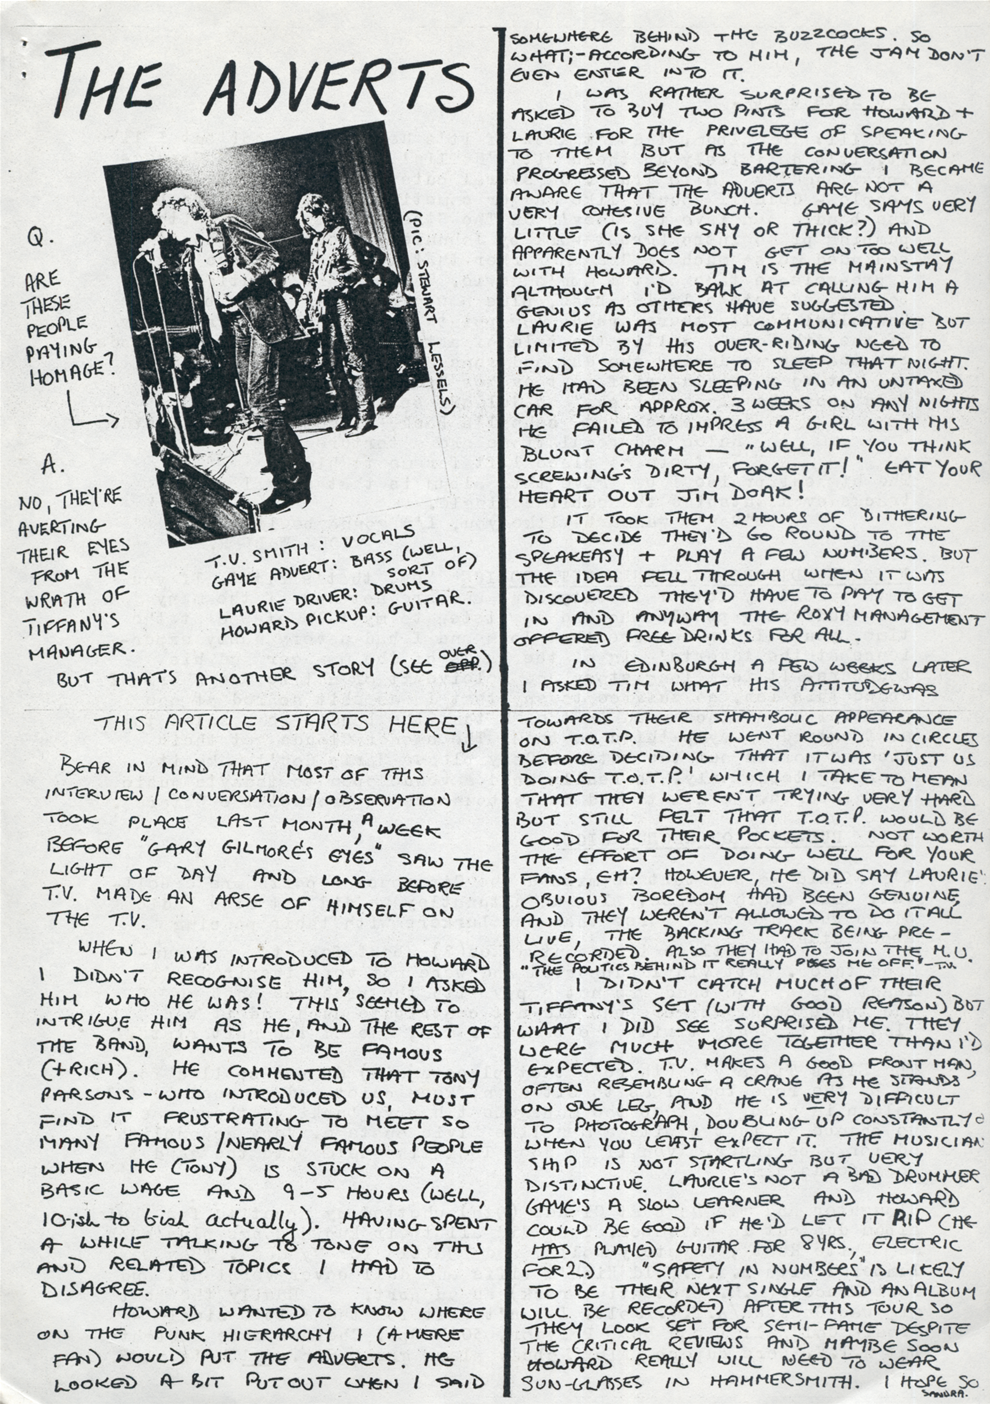 THE ADVERTS
Q.
ARE
THESE
PEOPLE
PAYING
HOMAGE?
A.
NO, THEY'RE
AVERTING
THEIR EYES
FROM THE
WRATH OF
TIFFANY'S
MANAGER.
(PIC: STEWART WESSELS)
T.V. SMITH : VOCALS
GAYE ADVERT: BASS (WELL,
SORT OF)
LAURIE DRIVER: DRUMS
HOWARD PICKUP: GUITAR.
BUT THAT'S ANOTHER STORY (SEE OVER.)
THIS ARTICLE STARTS HERE
BEAR IN MIND THAT MOST OF THIS
INTERVIEW / CONVERSATION / OBSERVATION
TOOK PLACE LAST MONTH, A WEEK
BEFORE "GARY GILMORE'S EYES" SAW THE
LIGHT OF DAY AND LONG BEFORE
T.V. MADE AN ARSE OF HIMSELF ON
THE T.V.
WHEN I WAS INTRODUCED TO HOWARD
I DIDN'T RECOGNISE HIM, SO I ASKED
HIM WHO HE WAS! THIS SEEMED TO
INTRIGUE HIM AS HE, AND THE REST OF
THE BAND, WANTS TO BE FAMOUS
(+RICH). HE COMMENTED THAT TONY
PARSONS - WHO INTRODUCED US, MUST
FIND IT FRUSTRATING TO MEET SO
MANY FAMOUS / NEARLY FAMOUS PEOPLE
WHEN HE (TONY) IS STUCK ON A
BASIC WAGE AND 9-5 HOURS (WELL,
10-ish to 6ish actually). HAVING SPENT
A WHILE TALKING TO TONE ON THIS
AND RELATED TOPICS I HAD TO
DISAGREE.
HOWARD WANTED TO KNOW WHERE
ON THE PUNK HIERARCHY I (A MERE
FAN) WOULD PUT THE ADVERTS. HE
LOOKED A BIT PUT OUT WHEN I SAID
SOMEWHERE BEHIND THE BUZZCOCKS. SO
WHAT;- ACCORDING TO HIM, THE JAM DON'T
EVEN ENTER INTO IT.
I WAS RATHER SURPRISED TO BE
ASKED TO BUY TWO PINTS FOR HOWARD +
LAURIE FOR THE PRIVELEGE OF SPEAKING
TO THEM BUT AS THE CONVERSATION
PROGRESSED BEYOND BARTERING I BECAME
AWARE THAT THE ADVERTS ARE NOT A
VERY COHESIVE BUNCH. GAYE SAYS VERY
LITTLE (IS SHE SHY OR THICK?) AND
APPARENTLY DOES NOT GET ON TOO WELL
WITH HOWARD. TIM IS THE MAINSTAY
ALTHOUGH I'D BALK AT CALLING HIM A
GENIUS AS OTHERS HAVE SUGGESTED.
LAURIE WAS MOST COMMUNICATIVE BUT
LIMITED BY HIS OVER-RIDING NEED TO
FIND SOMEWHERE TO SLEEP THAT NIGHT.
HE HAD BEEN SLEEPING IN AN UNTAXED
CAR FOR APPROX. 3 WEEKS ON ANY NIGHTS
HE FAILED TO IMPRESS A GIRL WITH HIS
BLUNT CHARM — "WELL, IF YOU THINK
SCREWING'S DIRTY, FORGET IT!" EAT YOUR
HEART OUT JIM DOAK!
IT TOOK THEM 2 HOURS OF DITHERING
TO DECIDE THEY'D GO ROUND TO THE
SPEAKEASY + PLAY A FEW NUMBERS. BUT
THE IDEA FELL THROUGH WHEN IT WAS
DISCOVERED THEY'D HAVE TO PAY TO GET
IN AND ANYWAY THE ROXY MANAGEMENT
OFFERED FREE DRINKS FOR ALL.
IN EDINBURGH A FEW WEEKS LATER
I ASKED TIM WHAT HIS ATTITUDE WAS
TOWARDS THEIR SHAMBOLIC APPEARANCE
ON T.O.T.P. HE WENT ROUND IN CIRCLES
BEFORE DECIDING THAT IT WAS 'JUST US
DOING T.O.T.P.' WHICH I TAKE TO MEAN
THAT THEY WEREN'T TRYING VERY HARD
BUT STILL FELT THAT T.O.T.P. WOULD BE
GOOD FOR THEIR POCKETS. NOT WORTH
THE EFFORT OF DOING WELL FOR YOUR
FANS, EH? HOWEVER, HE DID SAY LAURIE'
OBVIOUS BOREDOM HAD BEEN GENUINE,
AND THEY WEREN'T ALLOWED TO DO IT ALL
LIVE, THE BACKING TRACK BEING PRE-
RECORDED. ALSO THEY HAD TO JOIN THE M.U.
"THE POLITICS BEHIND IT REALLY PISSES ME OFF." - T.V.
I DIDN'T CATCH MUCH OF THEIR
TIFFANY'S SET (WITH GOOD REASON) BUT
WHAT I DID SEE SURPRISED ME. THEY
WERE MUCH MORE TOGETHER THAN I'D
EXPECTED. T.V. MAKES A GOOD FRONT MAN,
OFTEN RESEMBLING A CRANE AS HE STANDS
ON ONE LEG, AND HE IS VERY DIFFICULT
TO PHOTOGRAPH, DOUBLING UP CONSTANTLY
WHEN YOU LEAST EXPECT IT. THE MUSICIAN
SHIP IS NOT STARTLING BUT VERY
DISTINCTIVE. LAURIE'S NOT A BAD DRUMMER
GAYE'S A SLOW LEARNER AND HOWARD
COULD BE GOOD IF HE'D LET IT RIP (HE
HAS PLAYED GUITAR FOR 8 YRS., ELECTRIC
FOR 2.) "SAFETY IN NUMBERS" IS LIKELY
TO BE THEIR NEXT SINGLE AND AN ALBUM
WILL BE RECORDED AFTER THIS TOUR SO
THEY LOOK SET FOR SEMI-FAME DESPITE
THE CRITICAL REVIEWS AND MAYBE SOON
HOWARD REALLY WILL NEED TO WEAR
SUN-GLASSES IN HAMMERSMITH. I HOPE SO
SANDRA.